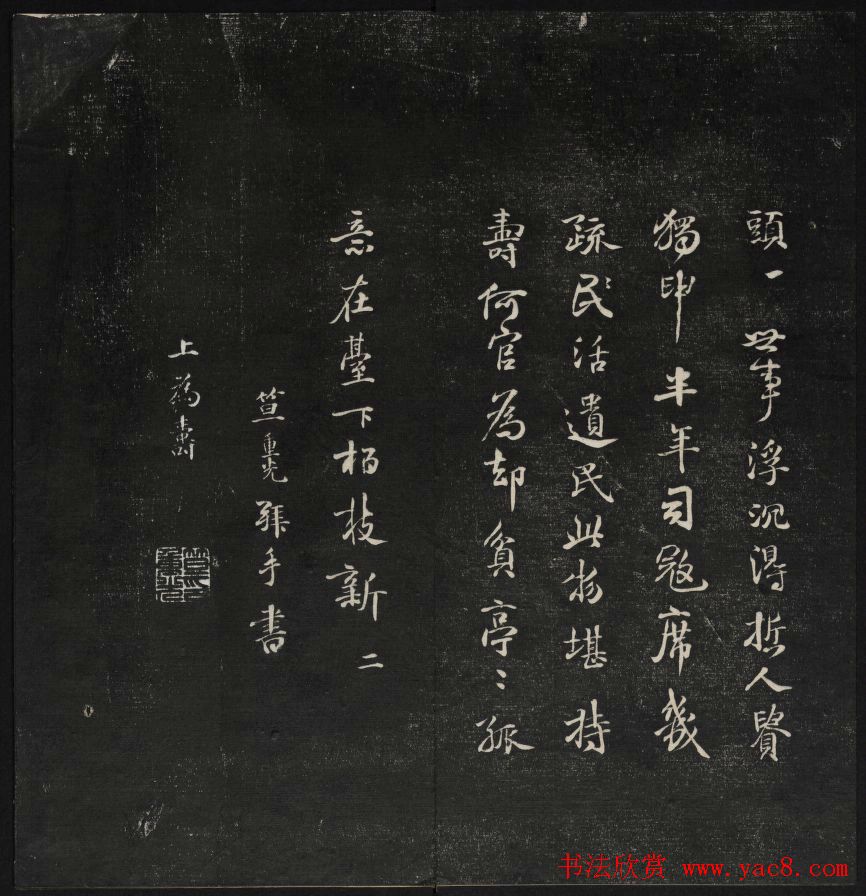 頭一 世事浮沉得哲人賢
獨申半年司寇席幾
疏民活遺民此物堪持
壽何官為却貧亭〻孤
意在臺下栢枝新 二
笪重光拜手書
上為壽
书法欣赏 www.yac8.com